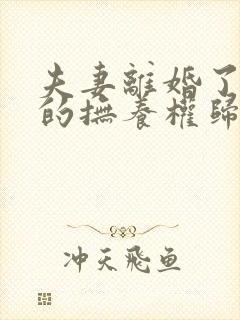 夫妻離婚了
的撫養權歸
冲天飛鱼